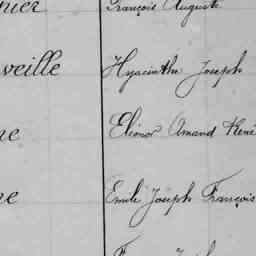 nier François Auguste
veille Hyacinthe Joseph
ne Eléonor Amand René
ne Emile Joseph François